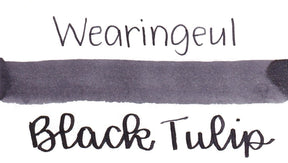 Wearingeul
Black Tulip